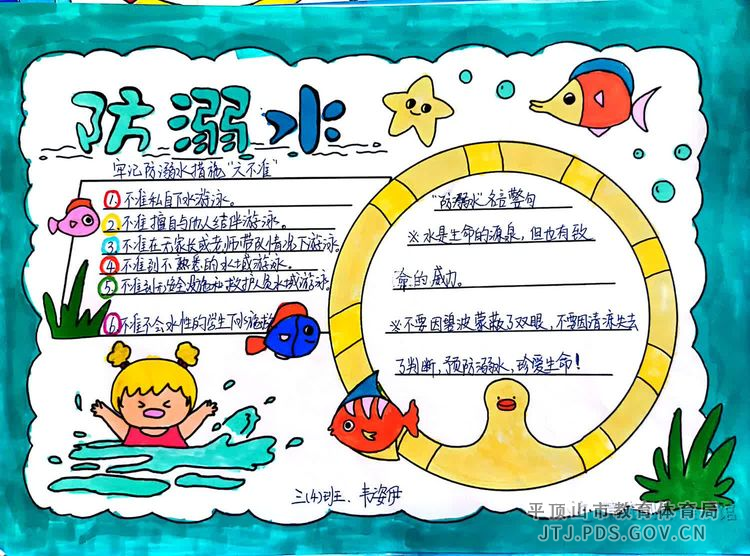 防溺水
牢记防溺水措施“六不准”
1.不准私自下水游泳。
2.不准擅自与他人结伴游泳。
3.不准在无家长或老师带队情况下游泳
4.不准到不熟悉的水域游泳。
5.不准到无安全设施和救护人员水域游泳
6.不准不会水性的学生下水施救
“防溺水”名言警句
※水是生命的源泉，但也有致
命的威力。
※不要因碧波蒙蔽了双眼，不要因清凉失去
了判断，预防溺水，珍爱生命！
三(4)班、
平顶山市教育体育局
JTJ.PDS.GOV.CN